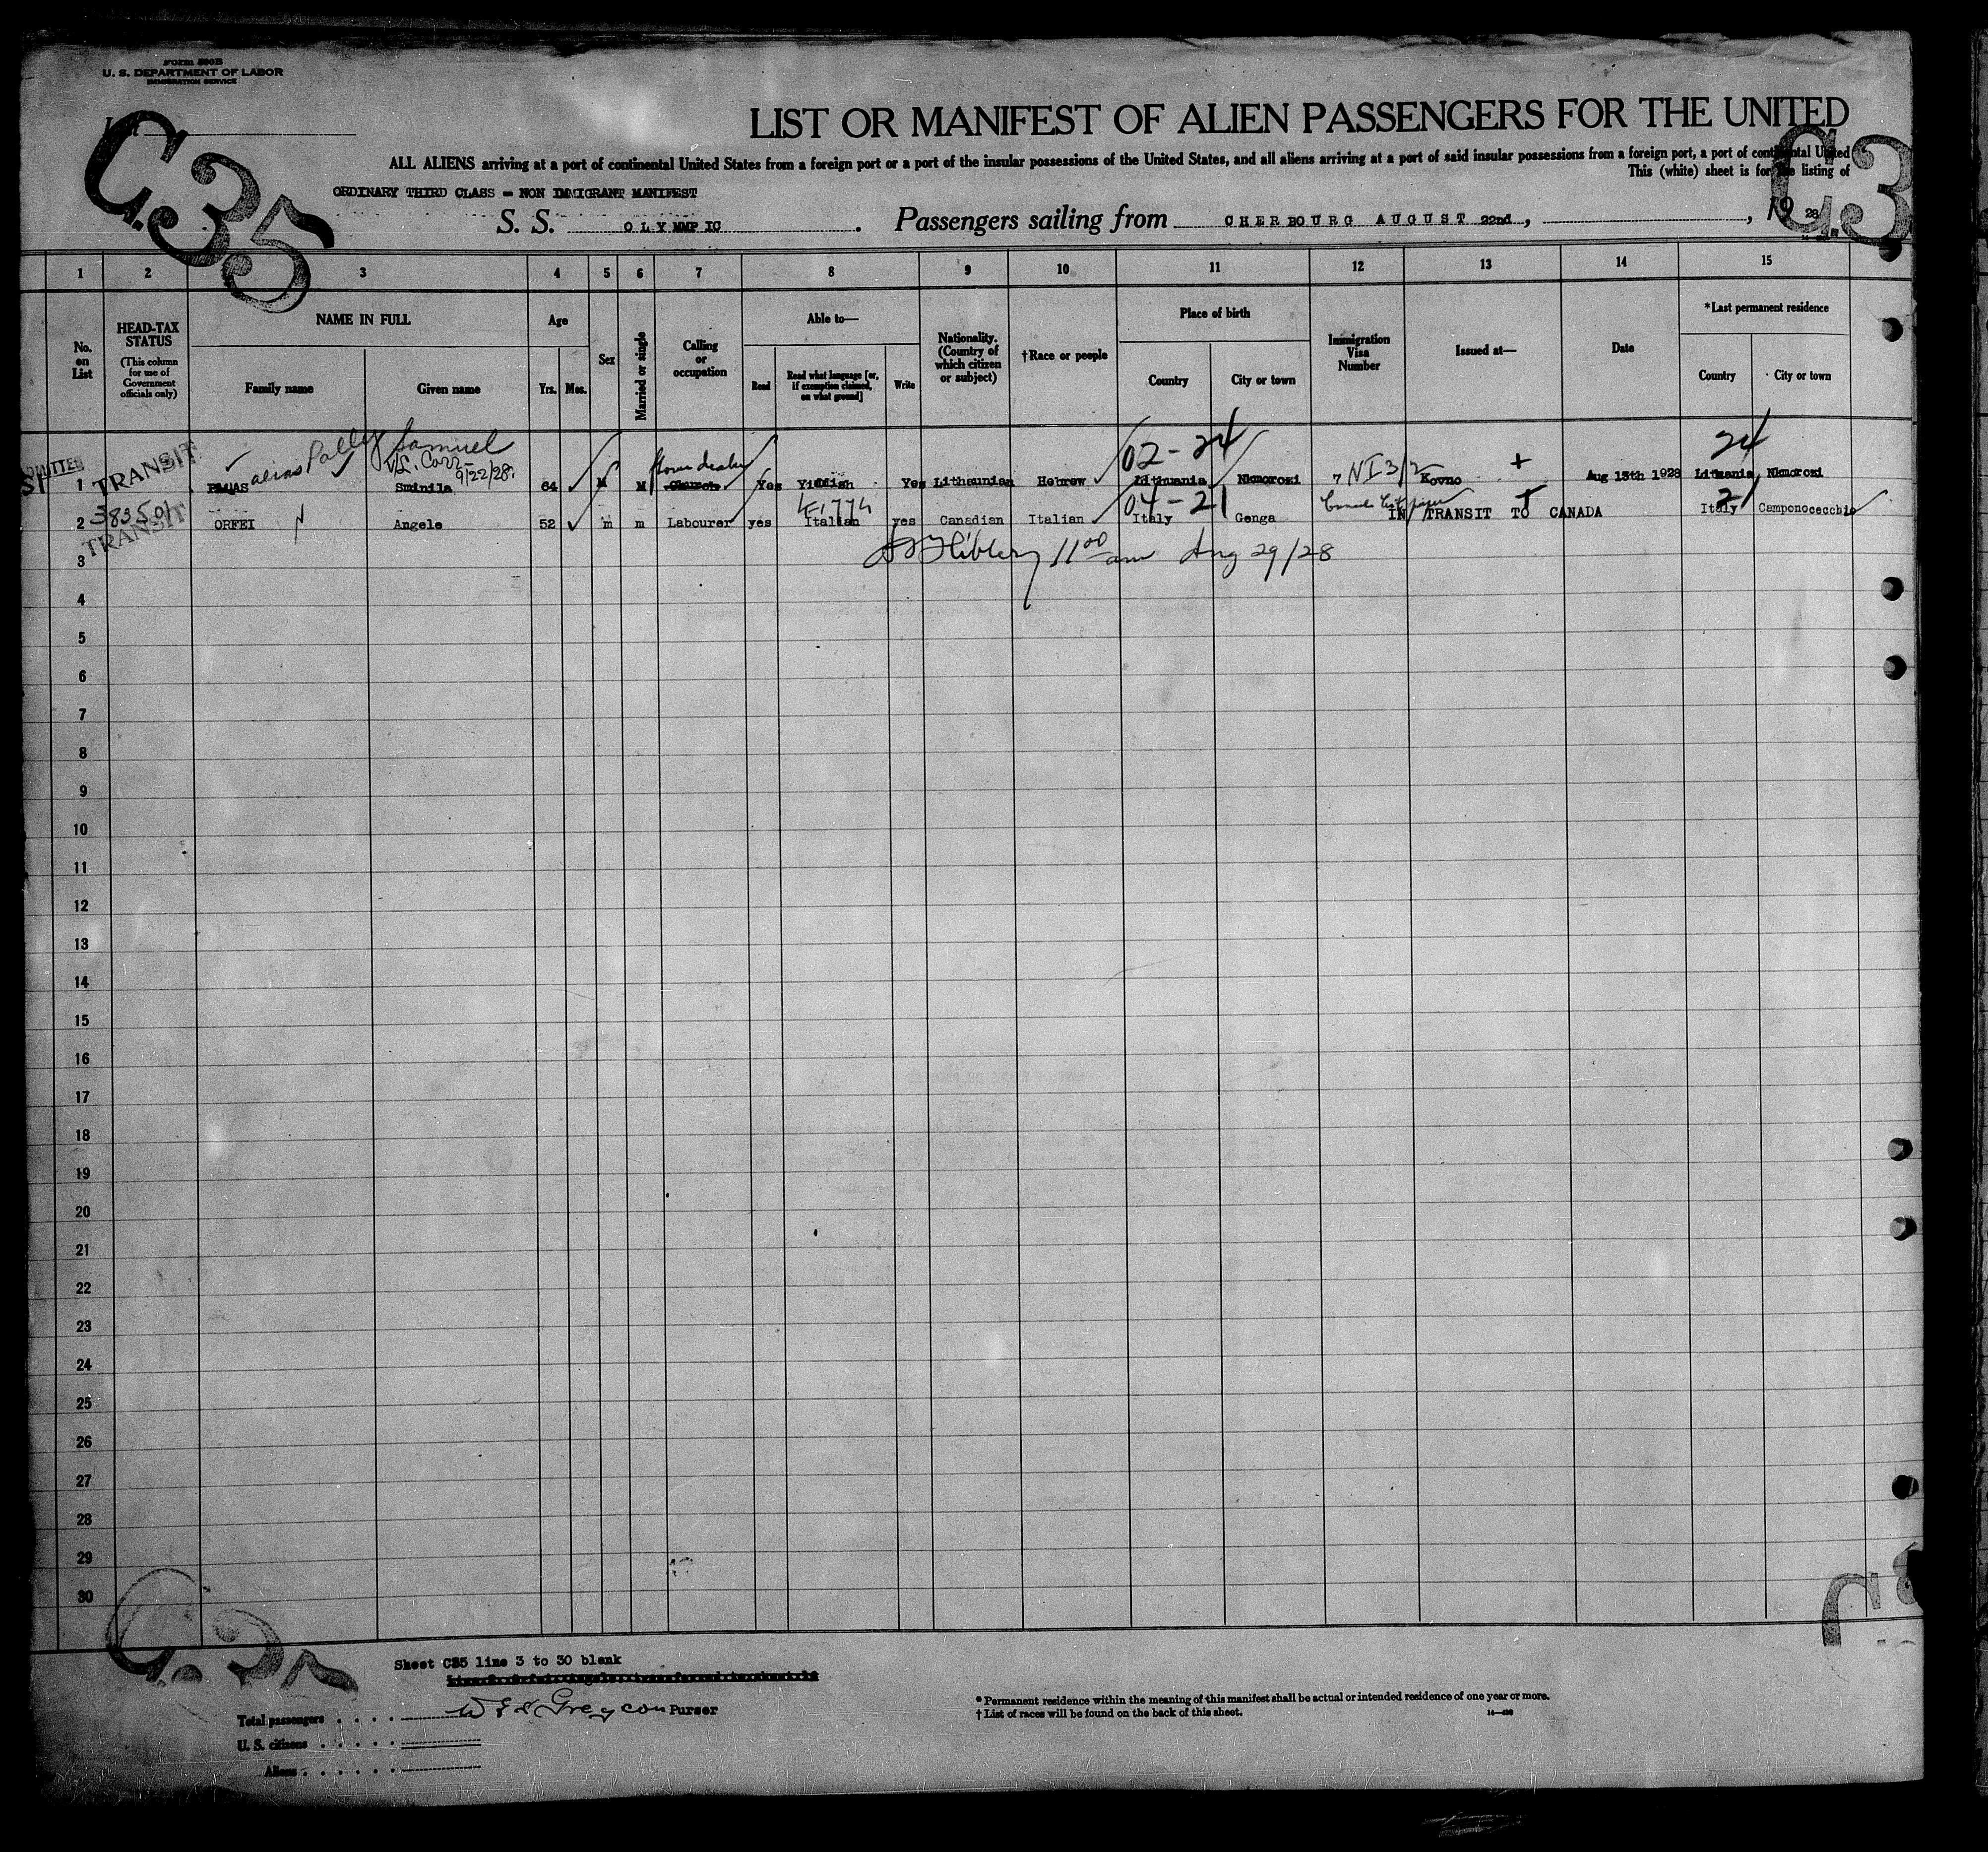 FORM 500B
U. S. DEPARTMENT OF LABOR
IMMIGRATION SERVICE
List
C.35
LIST OR MANIFEST OF ALIEN PASSENGERS FOR THE UNITED
C3
ALL ALIENS arriving at a port of continental United States from a foreign port or a port of the insular possessions of the United States, and all aliens arriving at a port of said insular possessions from a foreign port, a port of continental United
This (white) sheet is for the listing of
ORDINARY THIRD CLASS = NON IMMIGRANT MANIFEST
S. S. OLYMMPIC . Passengers sailing from CHERBOURG AUGUST 22nd, , 19 28
1 2 3 4 5 6 7 8 9 10 11 12 13 14 15
No. on List
HEAD-TAX STATUS (This column for use of Government officials only)
NAME IN FULL Family name Given name
Age Yrs. Mos.
Sex
Married or single
Calling or occupation
Able to— Read Read what language [or, if exemption claimed, on what ground] Write
Nationality. (Country of which citizen or subject)
†Race or people
Place of birth Country City or town
Immigration Visa Number
Issued at—
Date
*Last permanent residence Country City or town
ADMITTED TRANSIT alias Polly Samuel 02-24 24
V/L. Corr- 9/22/28.
SI 1 Sminila 64 M M Yes Yiddish Yes Lithaunian Hebrew Lithuania 7 NI 3/2 Kovno Aug 15th 1928 Lithuania
383501 TRANSIT 04-21 21
2 ORFEI Angelo 52 m m Labourer yes Italian yes Canadian Italian Italy Genga IN TRANSIT TO CANADA Italy Camponocecchio
11 00 am Aug 29/28
3
4
5
6
7
8
9
10
11
12
13
14
15
16
17
18
19
20
21
22
23
24
25
26
27
28
29
30
Sheet C35 line 3 to 30 blank
Purser
Total passengers
U. S. citizens
Aliens
* Permanent residence within the meaning of this manifest shall be actual or intended residence of one year or more.
† List of races will be found on the back of this sheet.